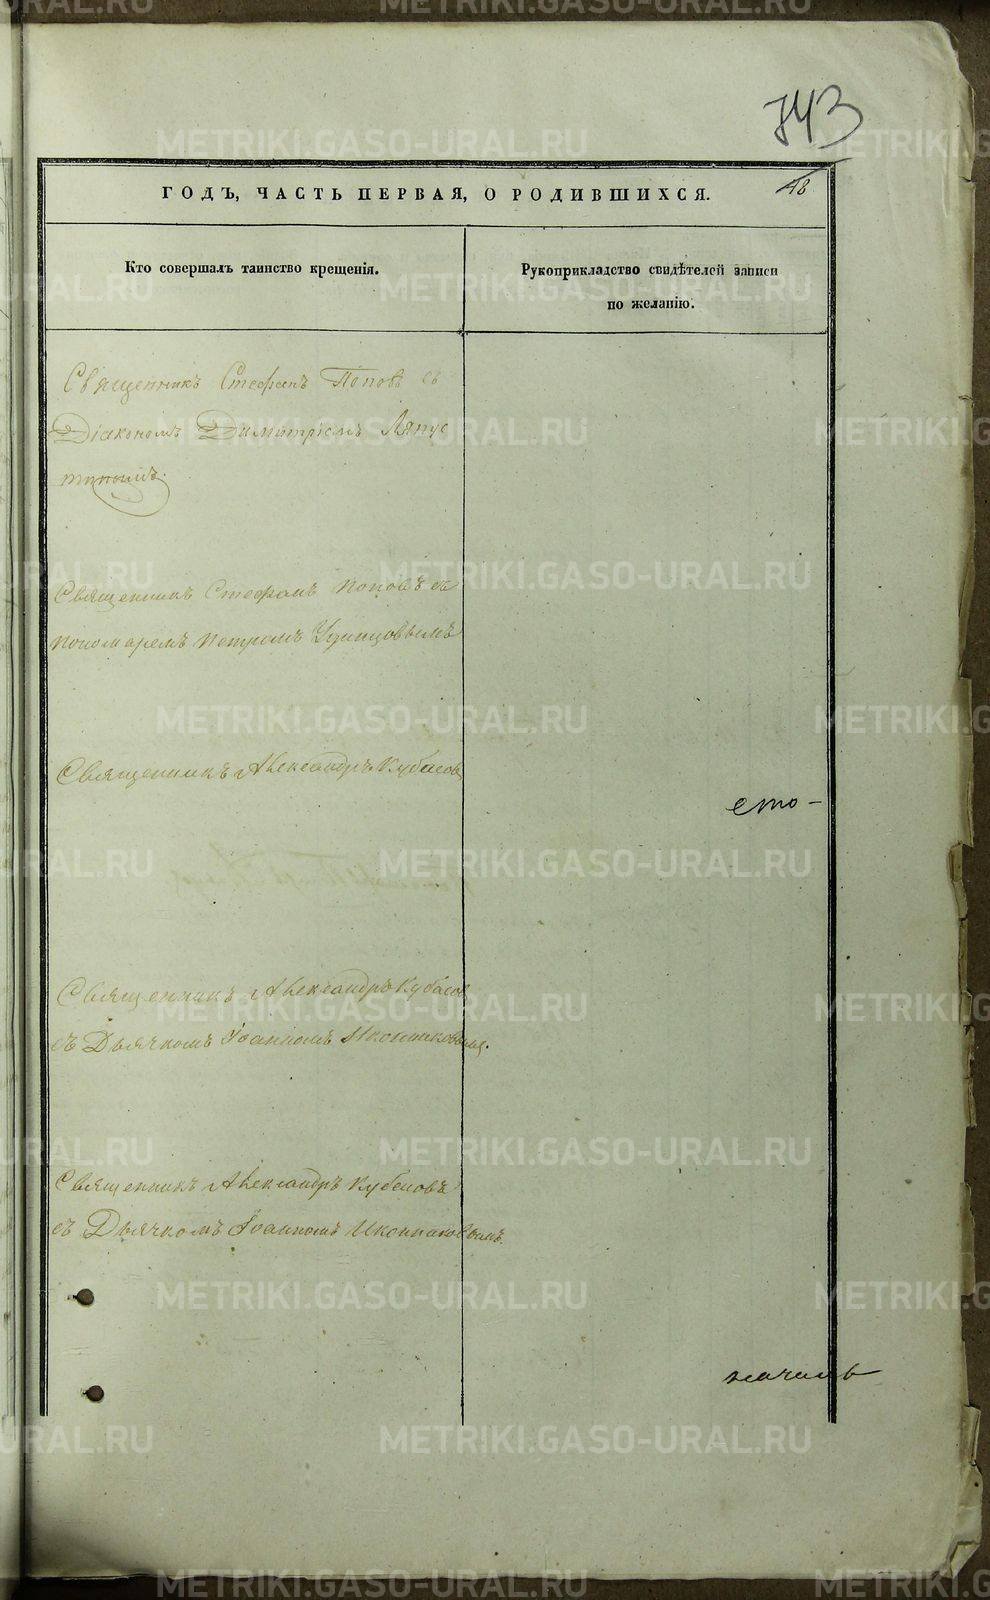 743
ГОДЪ, ЧАСТЬ ПЕРВАЯ, О РОДИВШИХСЯ.
48
Кто совершалъ таинство крещенія.
Рукоприкладство свидѣтелей записи
по желанію.
Священникъ Стефанъ Поповъ съ
Діакономъ Димитріемъ Ляпус
тинымъ.
Священникъ Стефанъ Поповъ съ
пономаремъ Петромъ
Священникъ Александръ Кубасовъ
его –
Священникъ Александръ Кубасов
съ Дьячкомъ Іоанномъ Иконниковымъ.
Священникъ Александръ Кубасовъ
съ Дьячкомъ Іоанномъ Иконниковымъ.
METRIKI.GASO-URAL.RU